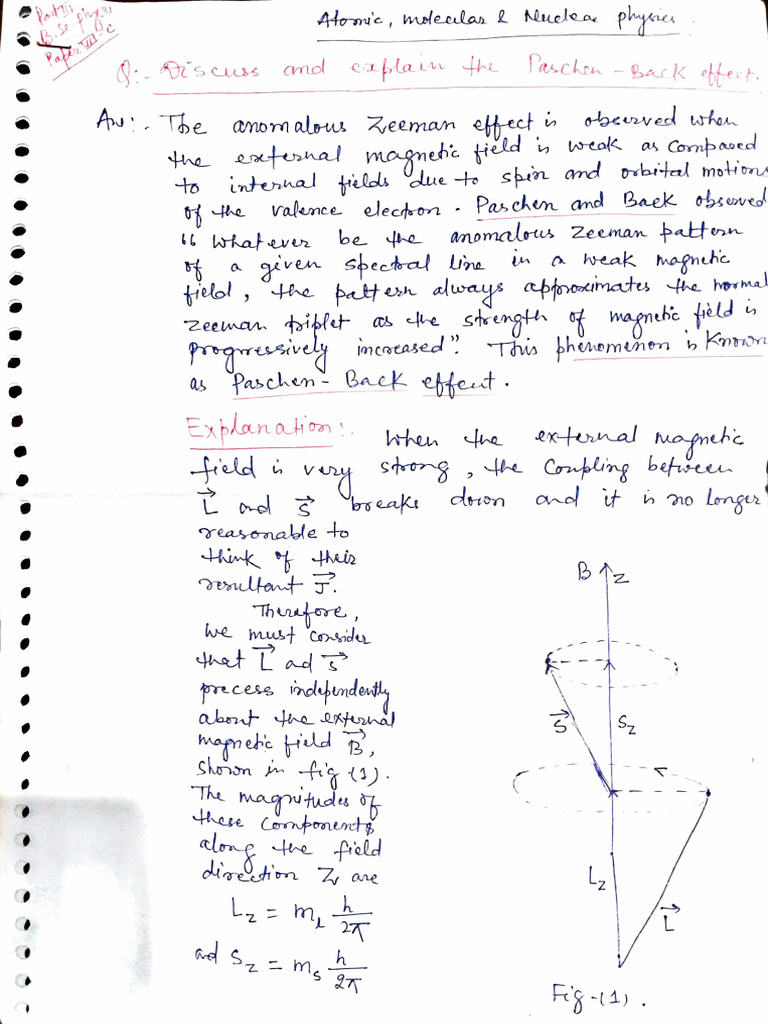 Part III
B.Sc. Phy(H)
Paper VII-C
Atomic, molecular & Nuclear physics.
Q:- Discuss and explain the Paschen-Back effect.
Ans:- The anomalous Zeeman effect is observed when
the external magnetic field is weak as compared
to internal fields due to spin and orbital motions
of the valence electron. Paschen and Back observed
"whatever be the anomalous Zeeman pattern
of a given spectral line in a weak magnetic
field, the pattern always approximates the normal
Zeeman triplet as the strength of magnetic field is
progressively increased". This phenomenon is known
as Paschen-Back effect.
Explanation:- When the external magnetic
field is very strong, the coupling between
L⃗ and S⃗ breaks down and it is no longer
reasonable to
think of their
resultant J⃗.
Therefore,
we must consider
that L⃗ ad S⃗
precess independently
about the external
magnetic field B⃗,
shown in fig (1).
The magnitudes of
these components
along the field
direction Z are
L_z = m_l h/2π
and S_z = m_s h/2π
B Z
S⃗ S_z
L_z L⃗
Fig-(1).